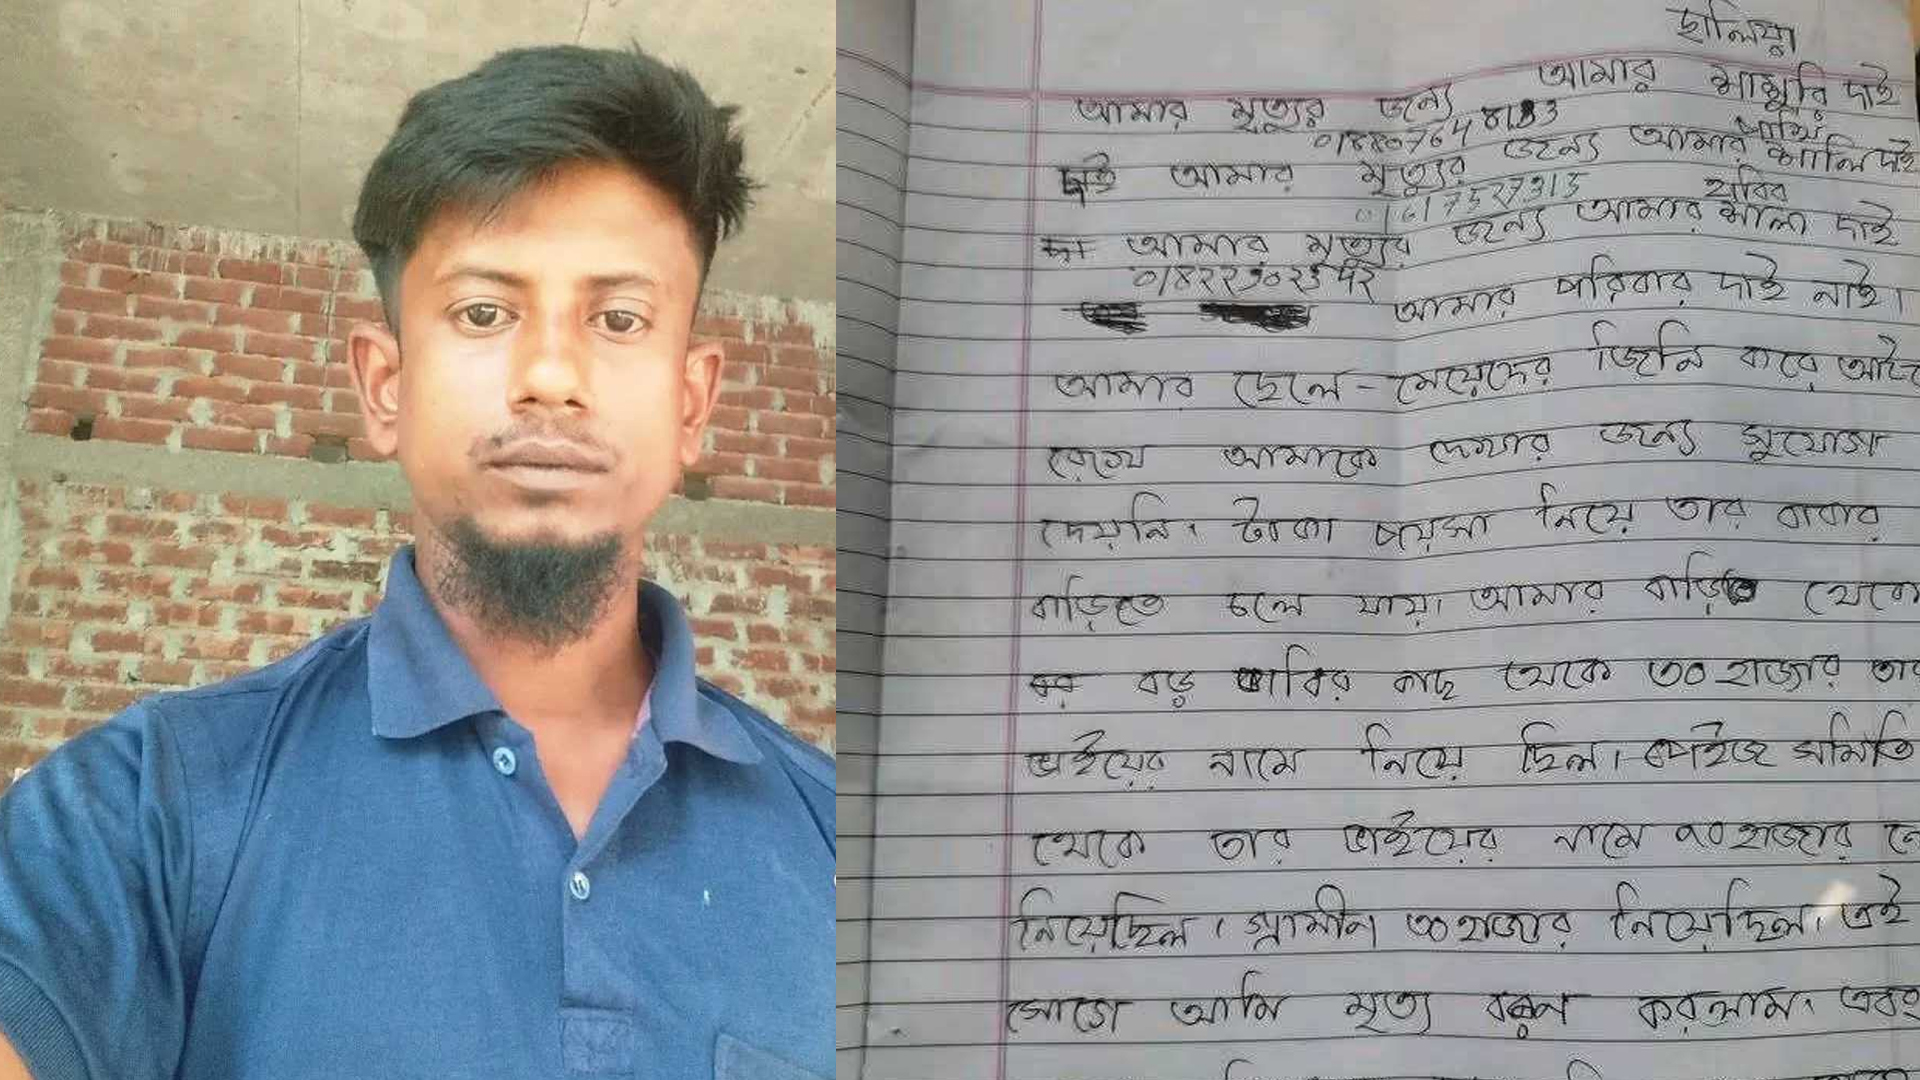 ছালিয়া
আমার মৃত্যুর জন্য আমার শাশুরি দাই
দাই আমার মৃত্যুর জন্য আমার শালি দাই
আমার মৃত্যুর জন্য আমার শালা দাই
আমার পরিবার দাই নাই।
আমার ছেলে-মেয়েদের জিনি করে
রেখে আমাকে দেখার জন্য সুযোগ
দেয়নি। টাকা পয়সা নিয়ে তার বাবার
বাড়িতে চলে যায়। আমার বাড়ি থেকে
বড় ভাবির কাছ থেকে ৩০ হাজার তার
ভাইয়ের নামে নিয়ে ছিল। পেইজ সমিতি
থেকে তার ভাইয়ের নামে ৭০ হাজার
নিয়েছিল। গ্রামীন ৩০ হাজার নিয়েছিল। এই
আমি মৃত্য বরন করলাম। এবং